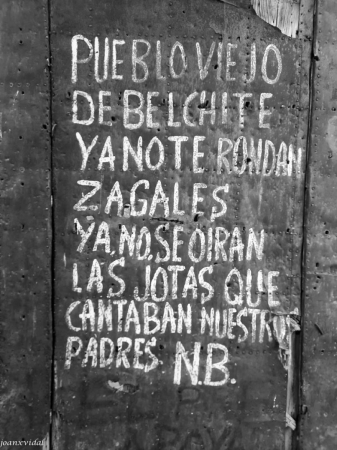 PUEBLO VIEJO
DE BELCHITE
YA NO TE RONDAN
ZAGALES
YA.NO.SE OIRAN
LAS JOTAS QUE
CANTABAN NUESTROS
PADRES. N.B.
joanxvidal